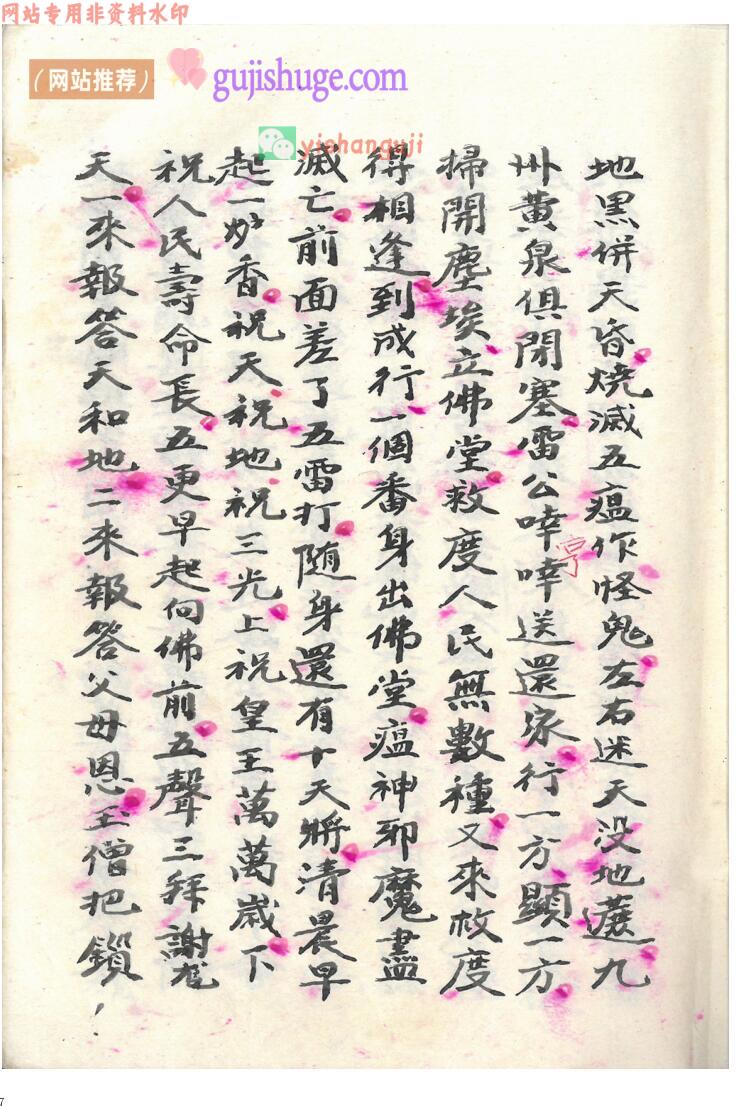 网站专用非资料水印
(网站推荐)
gujishuge.com
yishanguji
地黑併天昏燒滅五瘟作怪鬼左右迷天没地遮九
州黄泉俱閉塞雷公啈啈送還家行一方顯一方
亨
掃開塵埃立佛堂救度人民無數種又來救度
得相逢到成行一個番身出佛堂瘟神邪魔盡
滅亡前面差了五雷打随身還有十天將清晨早
起一炉香祝天祝地祝三光上祝皇王萬萬歲下
祝人民壽命長五更早起向佛前五聲三拜謝
天一來報答天和地二來報答父母恩玉僧把鎖
7